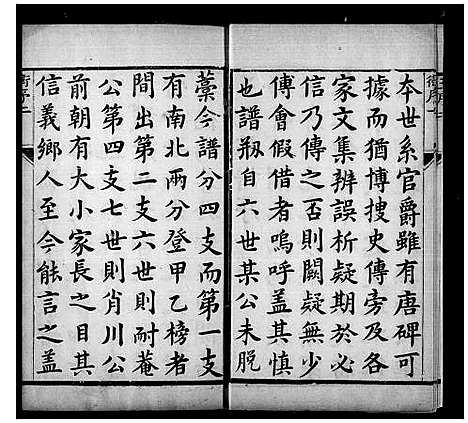 本世系官爵雖有唐碑可
據而猶博搜史傳旁及各
家文集辨誤析疑期於必
信乃傳之否則闕疑無少
傅會假借者嗚呼盖其慎
也譜刱自六世某公未脫
藁今譜分四支而第一支
有南北兩分登甲乙榜者
間出第二支六世則耐菴
公第四支七世則肖川公
前朝有大小家長之目其
信義鄉人至今能言之盖